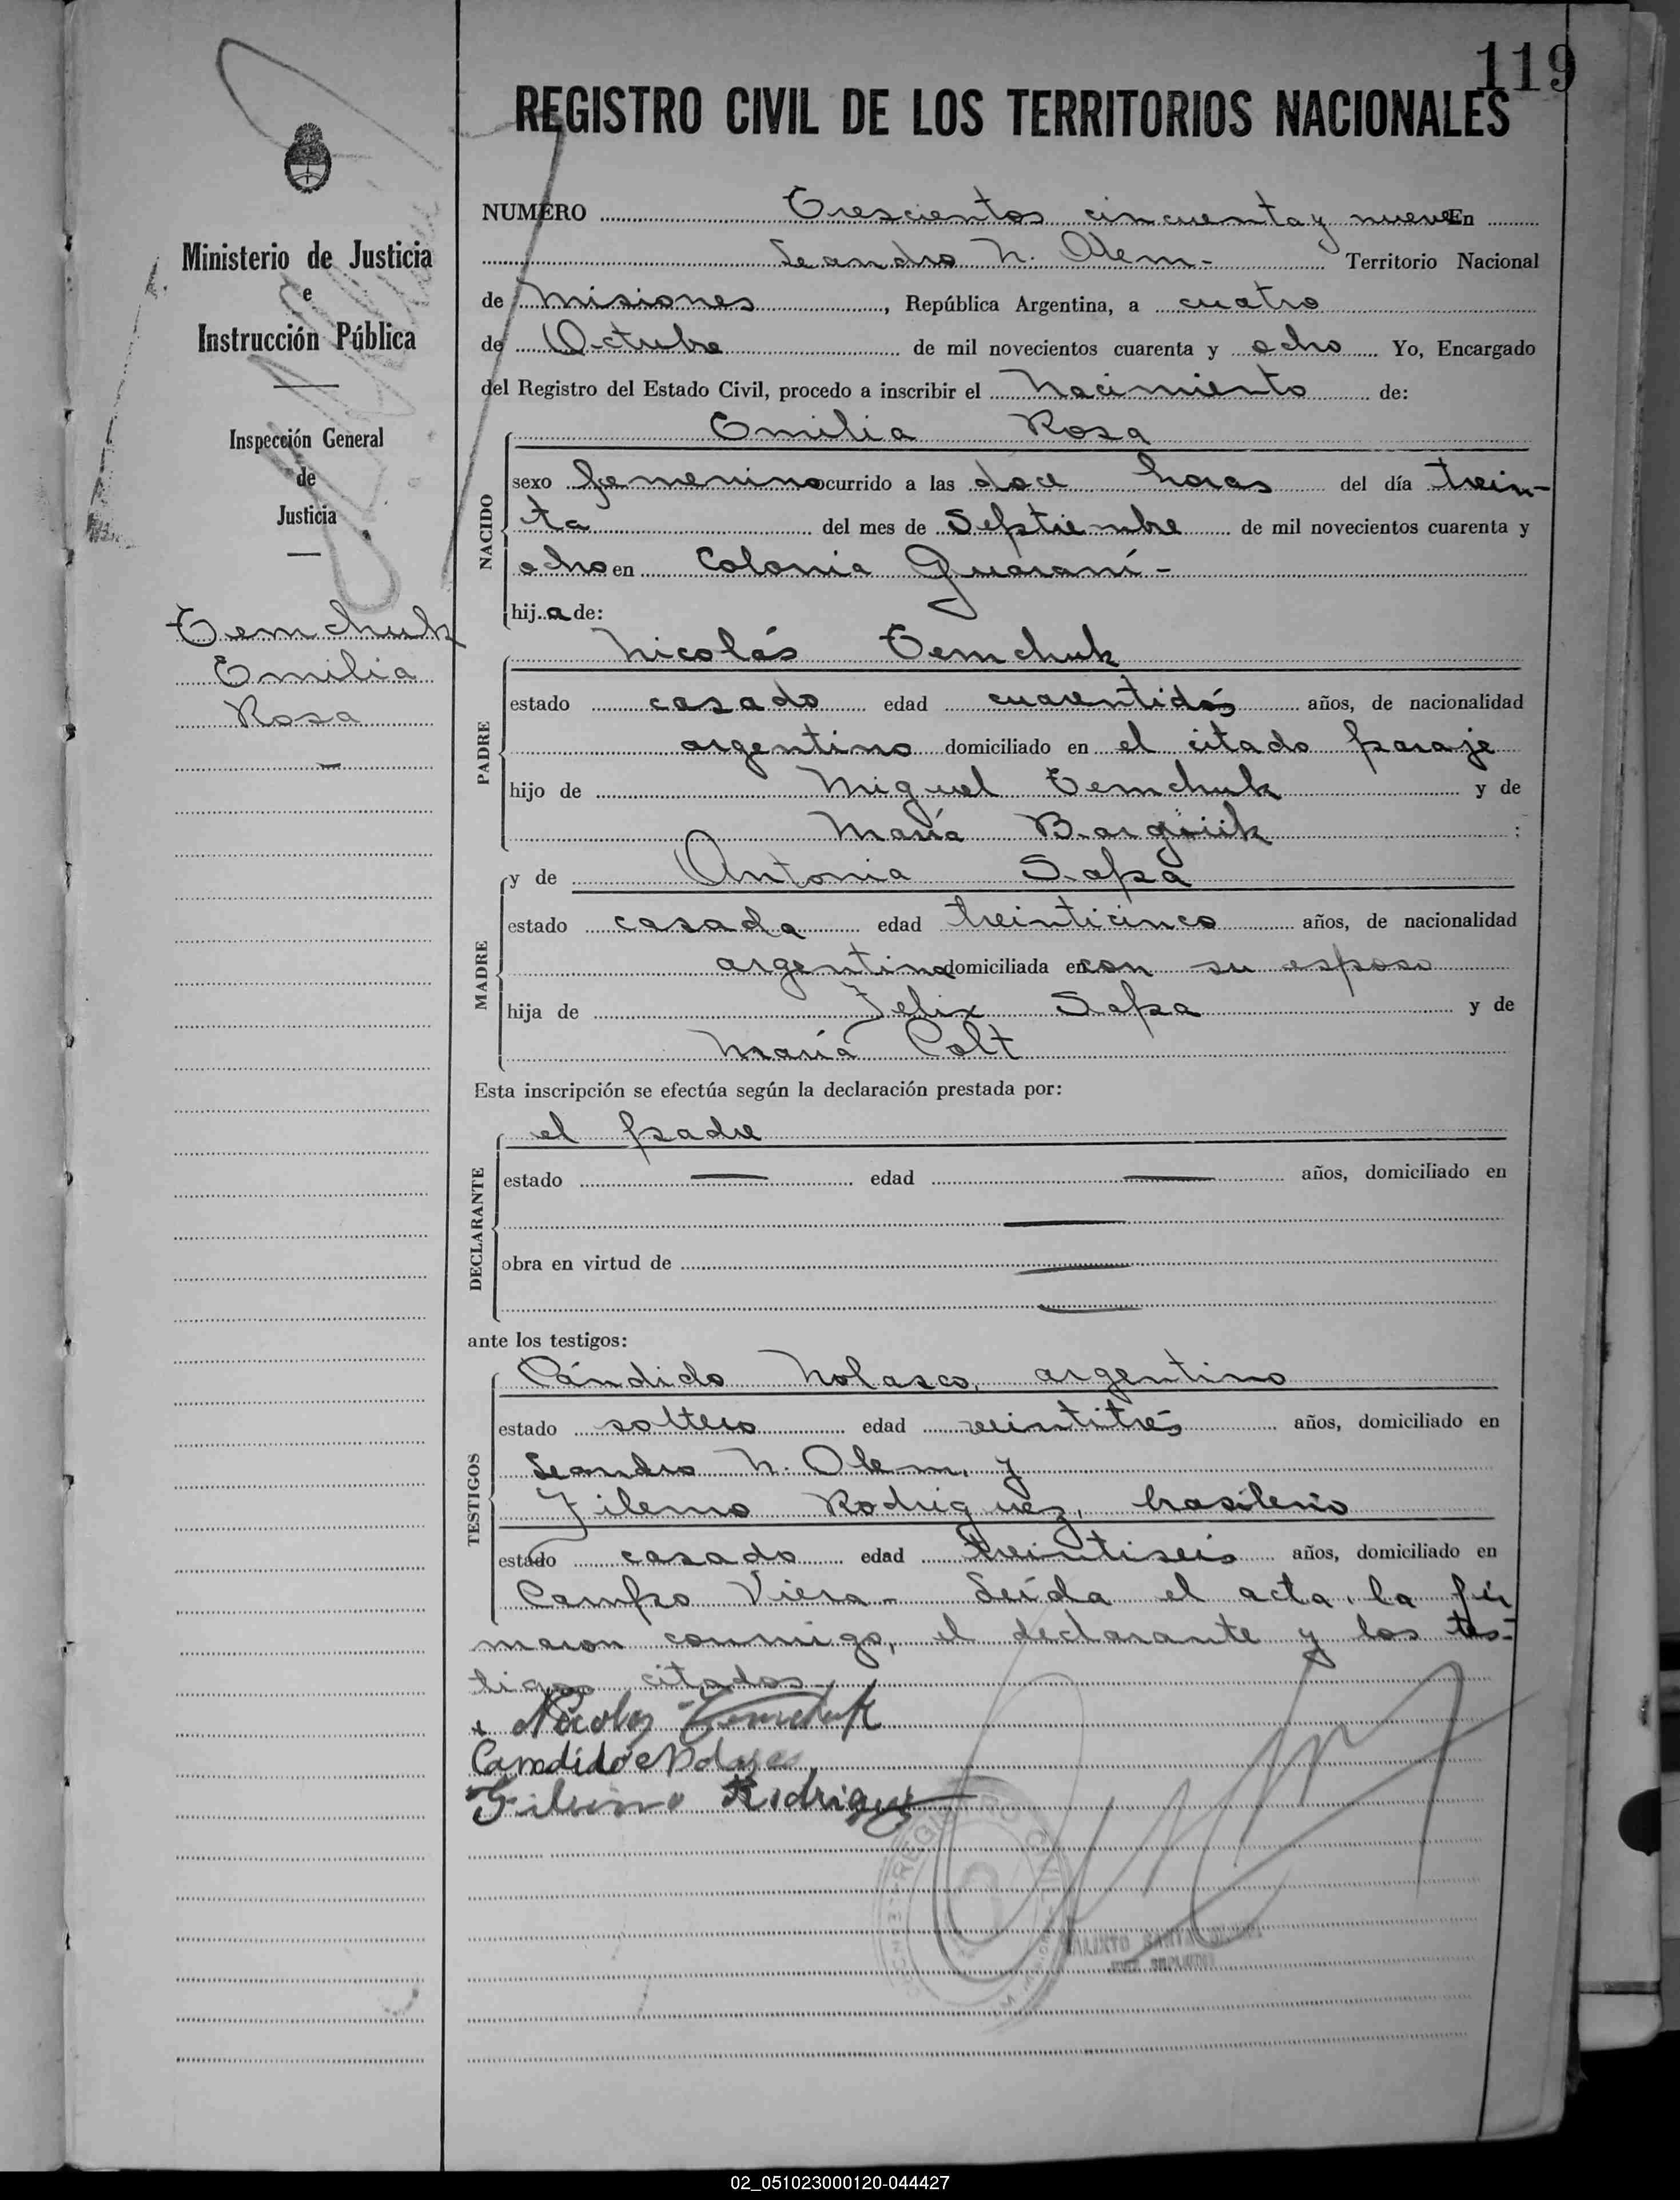 119
REGISTRO CIVIL DE LOS TERRITORIOS NACIONALES
Ministerio de Justicia
e
Instrucción Pública
Inspección General
de
Justicia
Temchuk
Emilia
Rosa
NUMERO Trescientos cincuenta y nueve En
Leandro N. Alem - Territorio Nacional
de Misiones, República Argentina, a cuatro
de Octubre de mil novecientos cuarenta y ocho Yo, Encargado
del Registro del Estado Civil, procedo a inscribir el Nacimiento de:
NACIDO
Emilia Rosa
sexo femenino ocurrido a las doce horas del día trein-
ta del mes de Septiembre de mil novecientos cuarenta y
ocho en Colonia Guaraní -
hij a de:
PADRE
Nicolás Temchuk
estado casado edad cuarentidós años, de nacionalidad
argentino domiciliado en el citado paraje
hijo de Miguel Temchuk y de
María :
MADRE
y de Antonia Sapa
estado casada edad treinticinco años, de nacionalidad
argentina domiciliada en con su esposo
hija de Felix Sapa y de
María Colt
Esta inscripción se efectúa según la declaración prestada por:
DECLARANTE
el padre
estado — edad — años, domiciliado en
—
obra en virtud de —
—
ante los testigos:
TESTIGOS
Cándido Nolasco, argentino
estado soltero edad veintitrés años, domiciliado en
Leandro N. Alem, y
Filemo Rodriguez, brasileño
estado casado edad treintiseis años, domiciliado en
Campo Viera - Leída el acta, la fir
maron conmigo, el declarante y los tes-
tigos citados
Nicolas Temchuk
Candido Nolasco
Filemo Rodriguez
02_051023000120-044427